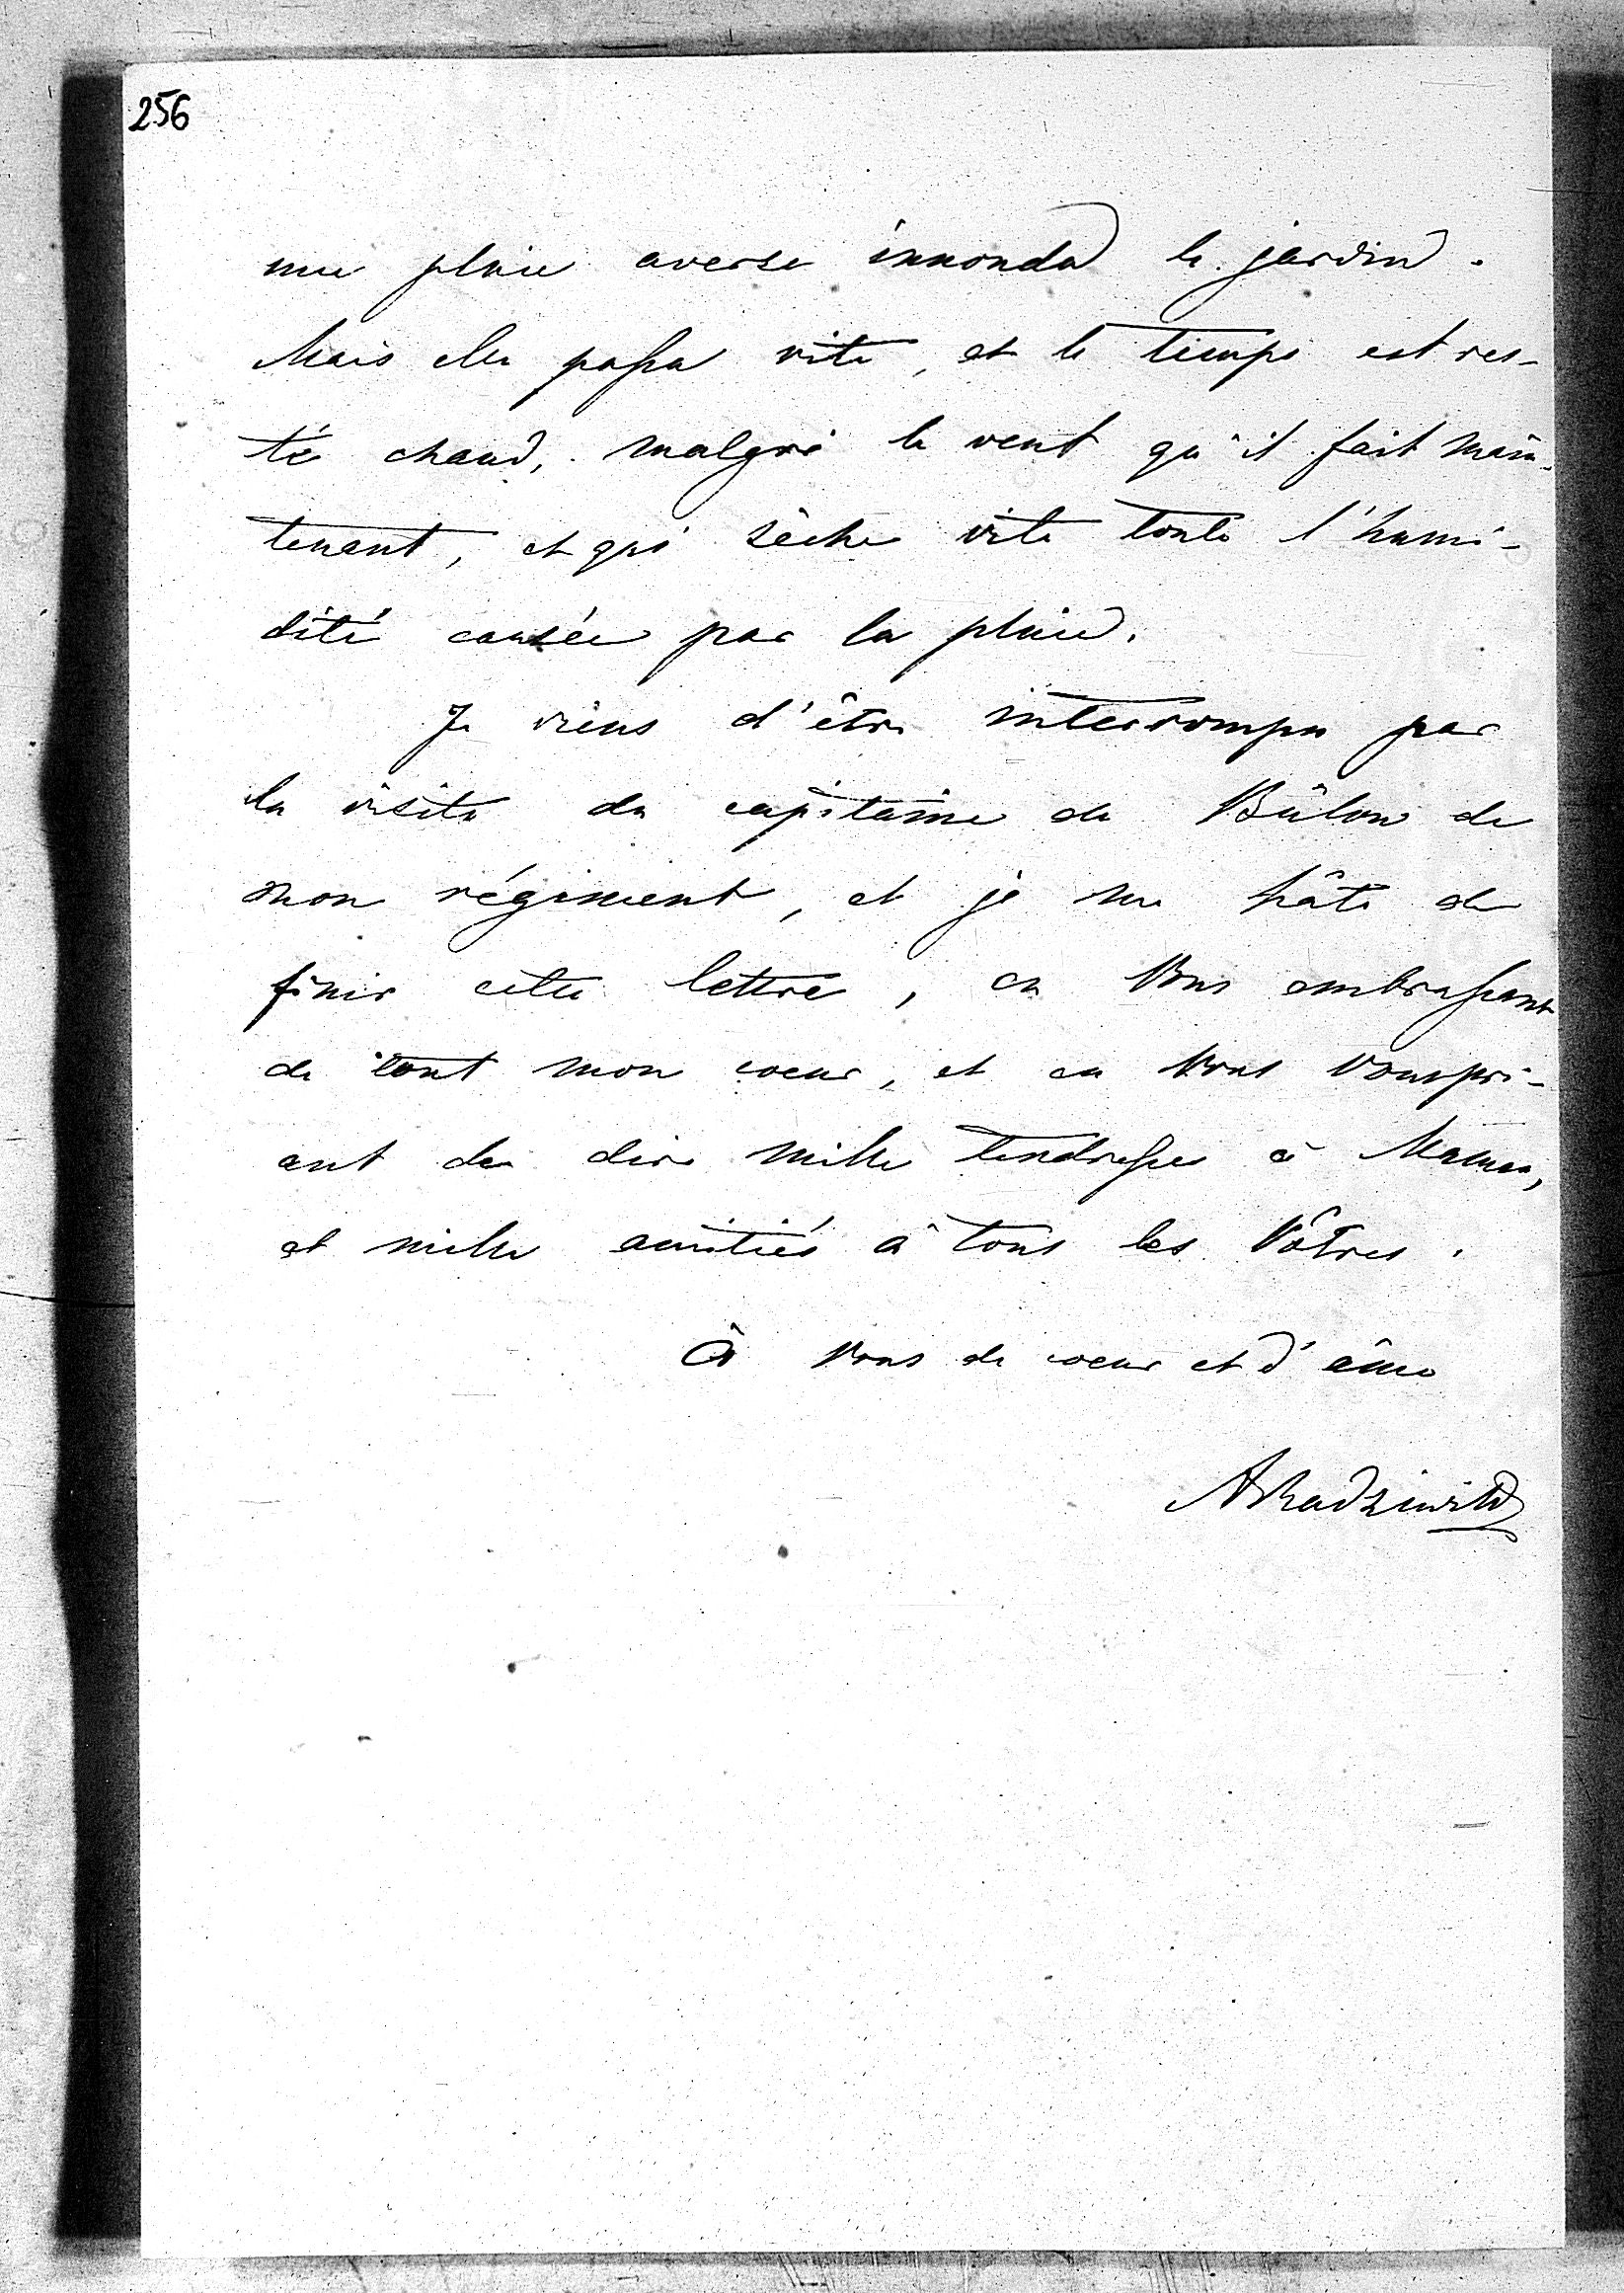 256
une pluie averse innonda le jardin.
Mais elle passa vite, et le temps est res-
té chaud, malgré le vent qu'il fait main-
tenant, et qui sèche vite toute l'humi-
dité causée par la pluie.
Je viens d'être interrompu par
la visite du capitaine de Bülow de
mon régiment, et je me hâte de
finir cette lettre, en Vous embrassant
de tout mon coeur, et en Vous Vous pri-
ant de dire mille tendresses à Maman,
et mille amitiés à tous les Vôtres.
À Vous de coeur et d'âme
ARadziwill